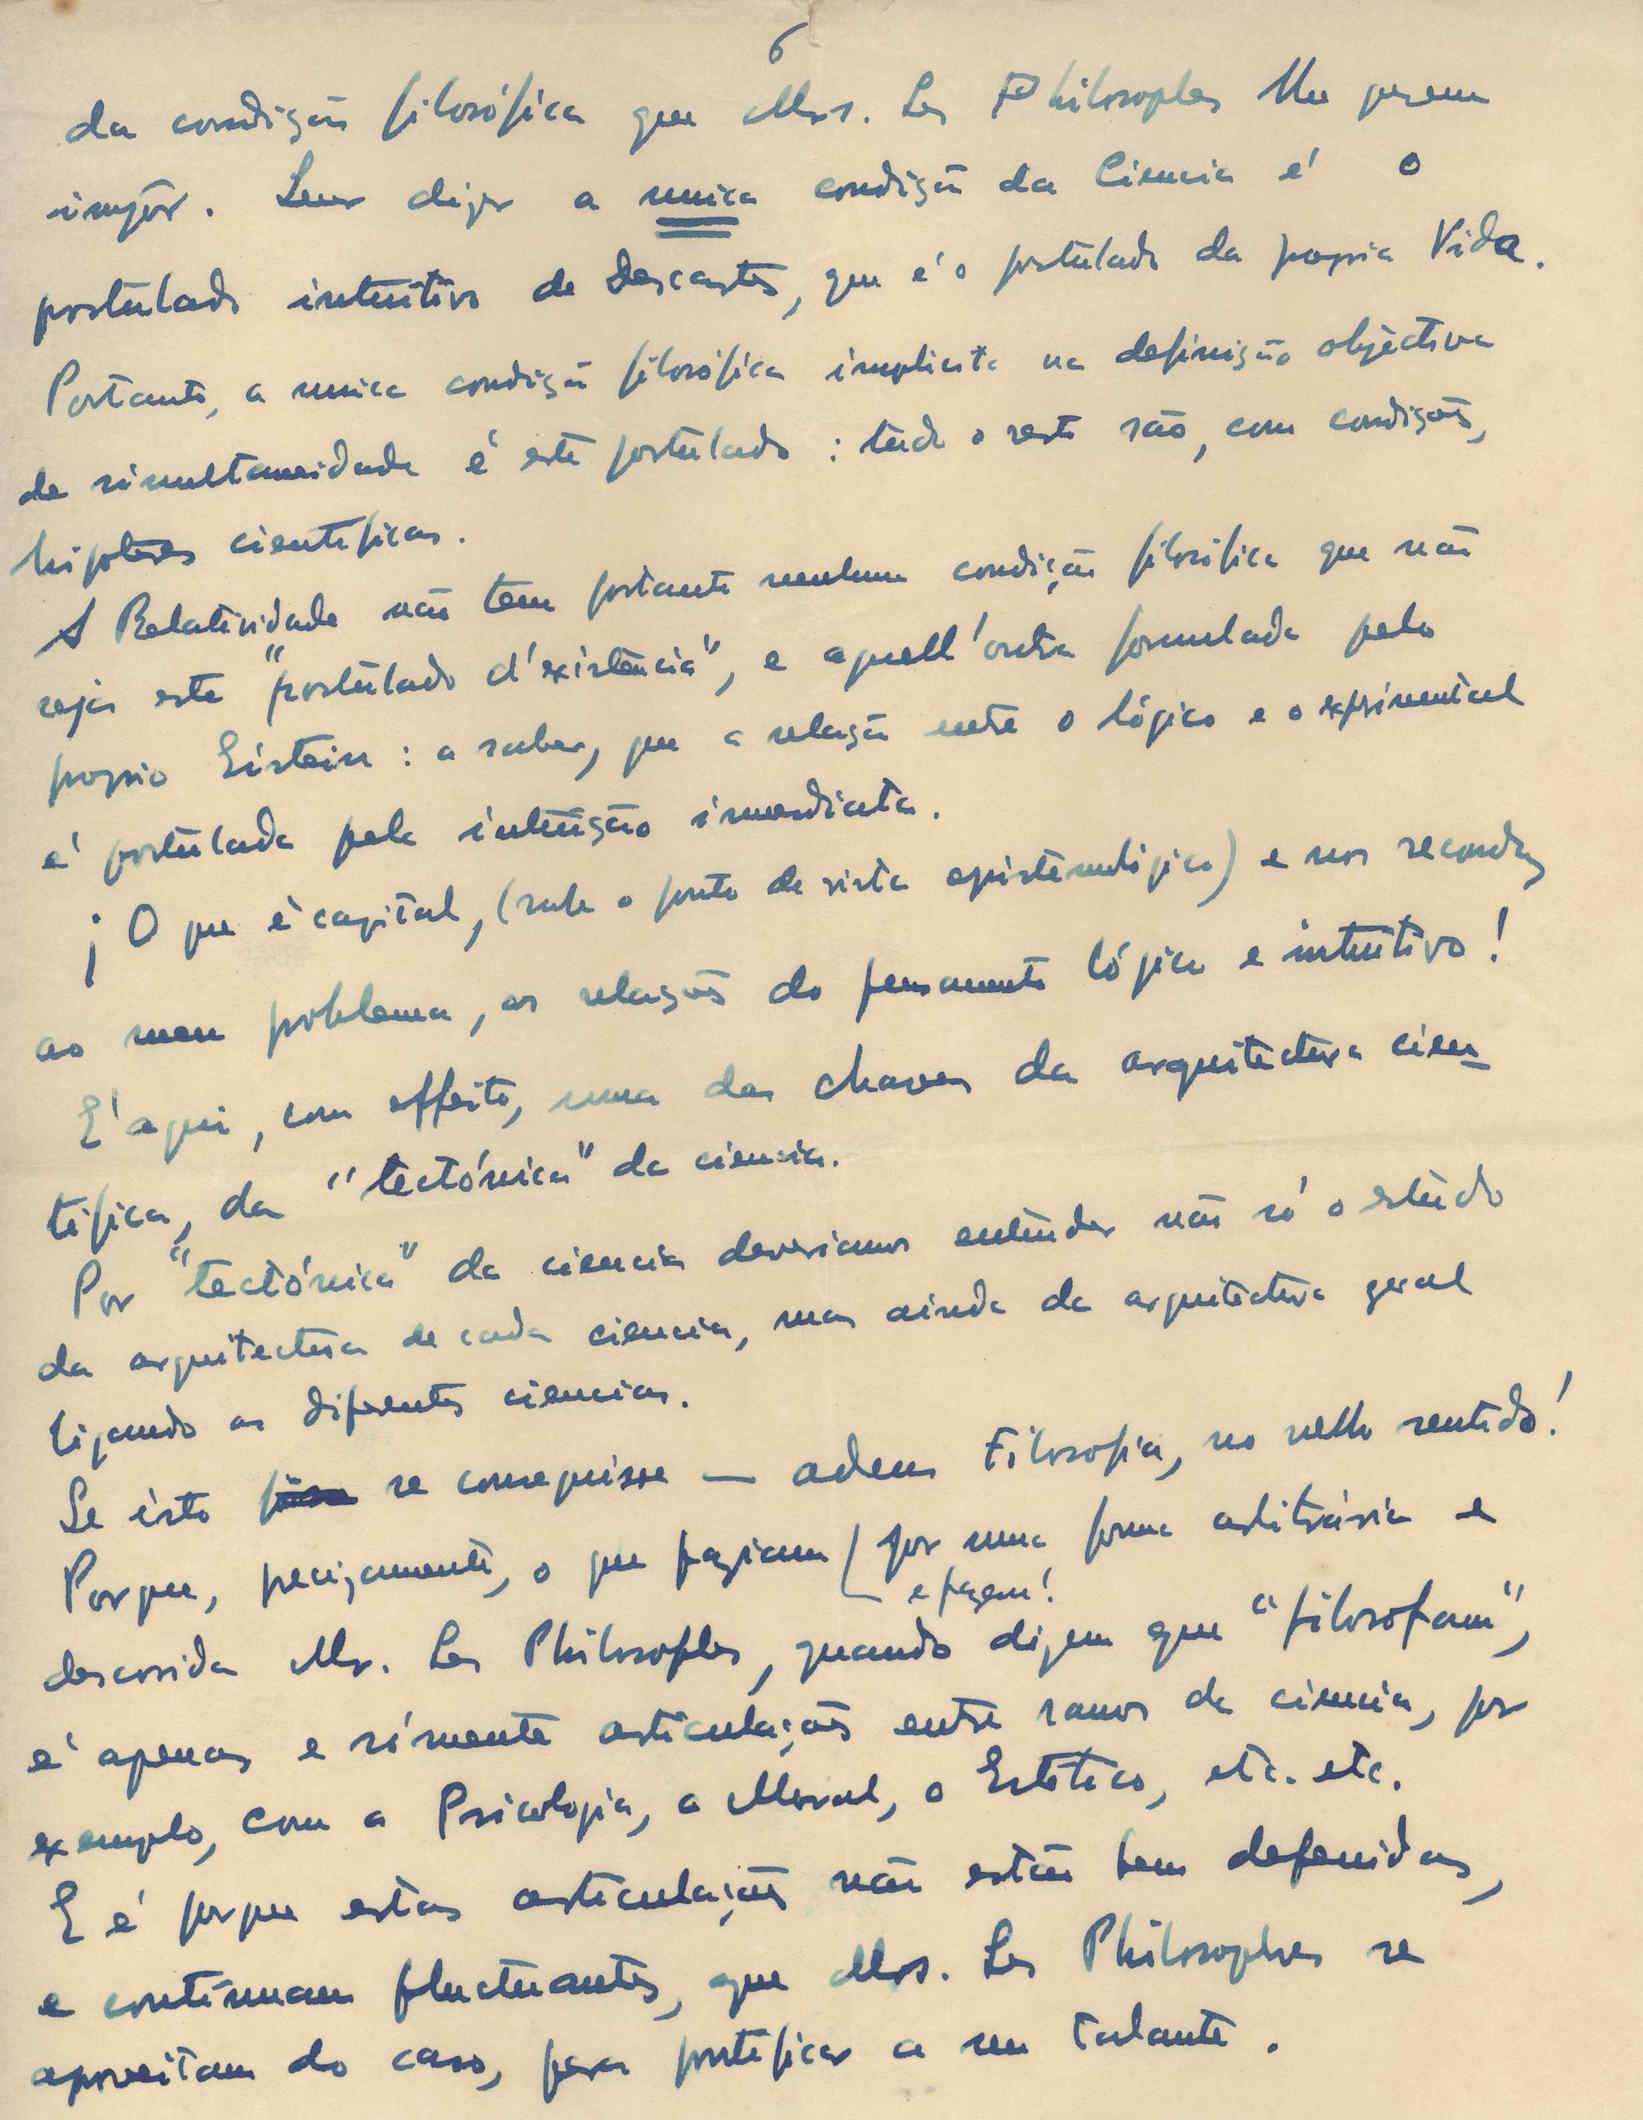 6
da condição filosófica que Mrs. Les Philosophes lhe querem
impôr. Quer dizer a unica condição da Ciencia é o
postulado intuitivo de Descartes, que é o postulado da propria Vida.
Portanto, a unica condição filosófica implicita na definição objectiva
de simultaneidade é este postulado : tudo o resto são, com condições,
hipoteses cientificas.
A Relatividade não tem portanto nenhuma condição filosófica que não
seja este "postulado d'existência", e aquell'outra formulada pelo
proprio Einstein : a saber, que a relação entre o lógico e o experimental
é postulada pela intuição imediata.
¡ O que é capital, (sob o ponto de vista epistemológico) e nos reconduz
ao meu problema, as relações do pensamento lógico e intuitivo !
E' aqui, com effeito, uma das chaves da arquitectura cien-
tifica, da "tectónica" da ciencia.
Por "tectónica" da ciencia deveriamos entender não só o estudo
da arquitectura de cada ciencia, mas ainda da arquitectura geral
ligando as diferentes ciencias.
Se isto se conseguisse — adeus Filosofia, no velho sentido!
Porque, precizamente, o que faziam / por uma forma arbitrária e
e fazem!
descosida Mr. Les Philosophes, quando dizem que "filosofam",
é apenas e sómente articulações entre ramos da ciencia, por
exemplo, com a Psicologia, a Moral, o Estético, etc. etc.
E é porque estas articulações não estão bem defenidas,
e continuam fluctuantes, que Mrs. Les Philosophes se
aproveitam do caso, para pontificar a seu talante.